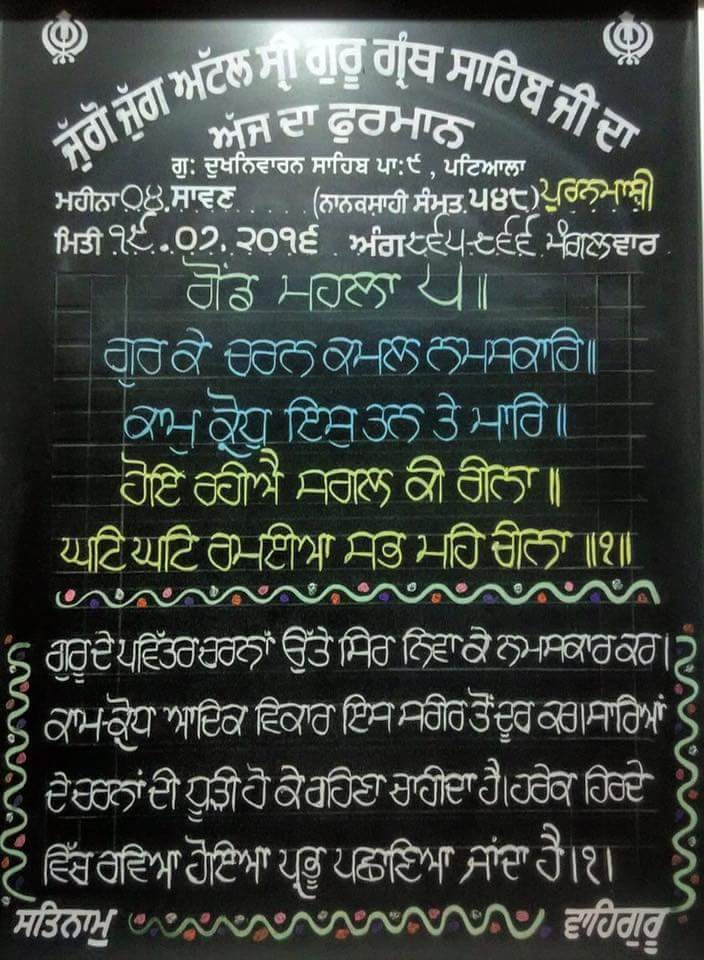 ਜੁੱਗੋ ਜੁੱਗ ਅਟੱਲ ਸ੍ਰੀ ਗੁਰੂ ਗ੍ਰੰਥ ਸਾਹਿਬ ਜੀ ਦਾ
ਅੱਜ ਦਾ ਫੁਰਮਾਨ
ਗੁ: ਦੁਖਨਿਵਾਰਨ ਸਾਹਿਬ ਪਾ:੯, ਪਟਿਆਲਾ
ਮਹੀਨਾ ੦੪. ਸਾਵਣ (ਨਾਨਕਸਾਹੀ ਸੰਮਤ ੫੪੮) ਪੂਰਨਮਾਸ਼ੀ
ਮਿਤੀ ੧੯.੦੭.੨੦੧੬ ਅੰਗ ੮੬੫-੮੬੬ ਮੰਗਲਵਾਰ
ਗੋਂਡ ਮਹਲਾ ੫॥
ਗੁਰ ਕੇ ਚਰਨ ਕਮਲ ਨਮਸਕਾਰਿ॥
ਕਾਮੁ ਕ੍ਰੋਧੁ ਇਸੁ ਤਨ ਤੇ ਮਾਰਿ॥
ਹੋਇ ਰਹੀਐ ਸਗਲ ਕੀ ਰੀਨਾ॥
ਘਟਿ ਘਟਿ ਰਮਈਆ ਸਭ ਮਹਿ ਚੀਨਾ॥੧॥
ਗੁਰੂ ਦੇ ਪਵਿੱਤਰ ਚਰਨਾਂ ਉੱਤੇ ਸਿਰ ਨਿਵਾ ਕੇ ਨਮਸਕਾਰ ਕਰ।
ਕਾਮ-ਕ੍ਰੋਧ ਆਦਿਕ ਵਿਕਾਰ ਇਸ ਸਰੀਰ ਤੋਂ ਦੂਰ ਕਰ।ਸਾਰਿਆਂ
ਦੇ ਚਰਨਾਂ ਦੀ ਧੂੜੀ ਹੋ ਕੇ ਰਹਿਣਾ ਚਾਹੀਦਾ ਹੈ।ਹਰੇਕ ਹਿਰਦੇ
ਵਿੱਚ ਰਵਿਆ ਹੋਇਆ ਪ੍ਰਭੂ ਪਛਾਣਿਆ ਜਾਂਦਾ ਹੈ।੧।
ਸਤਿਨਾਮੁ ਵਾਹਿਗੁਰੂ